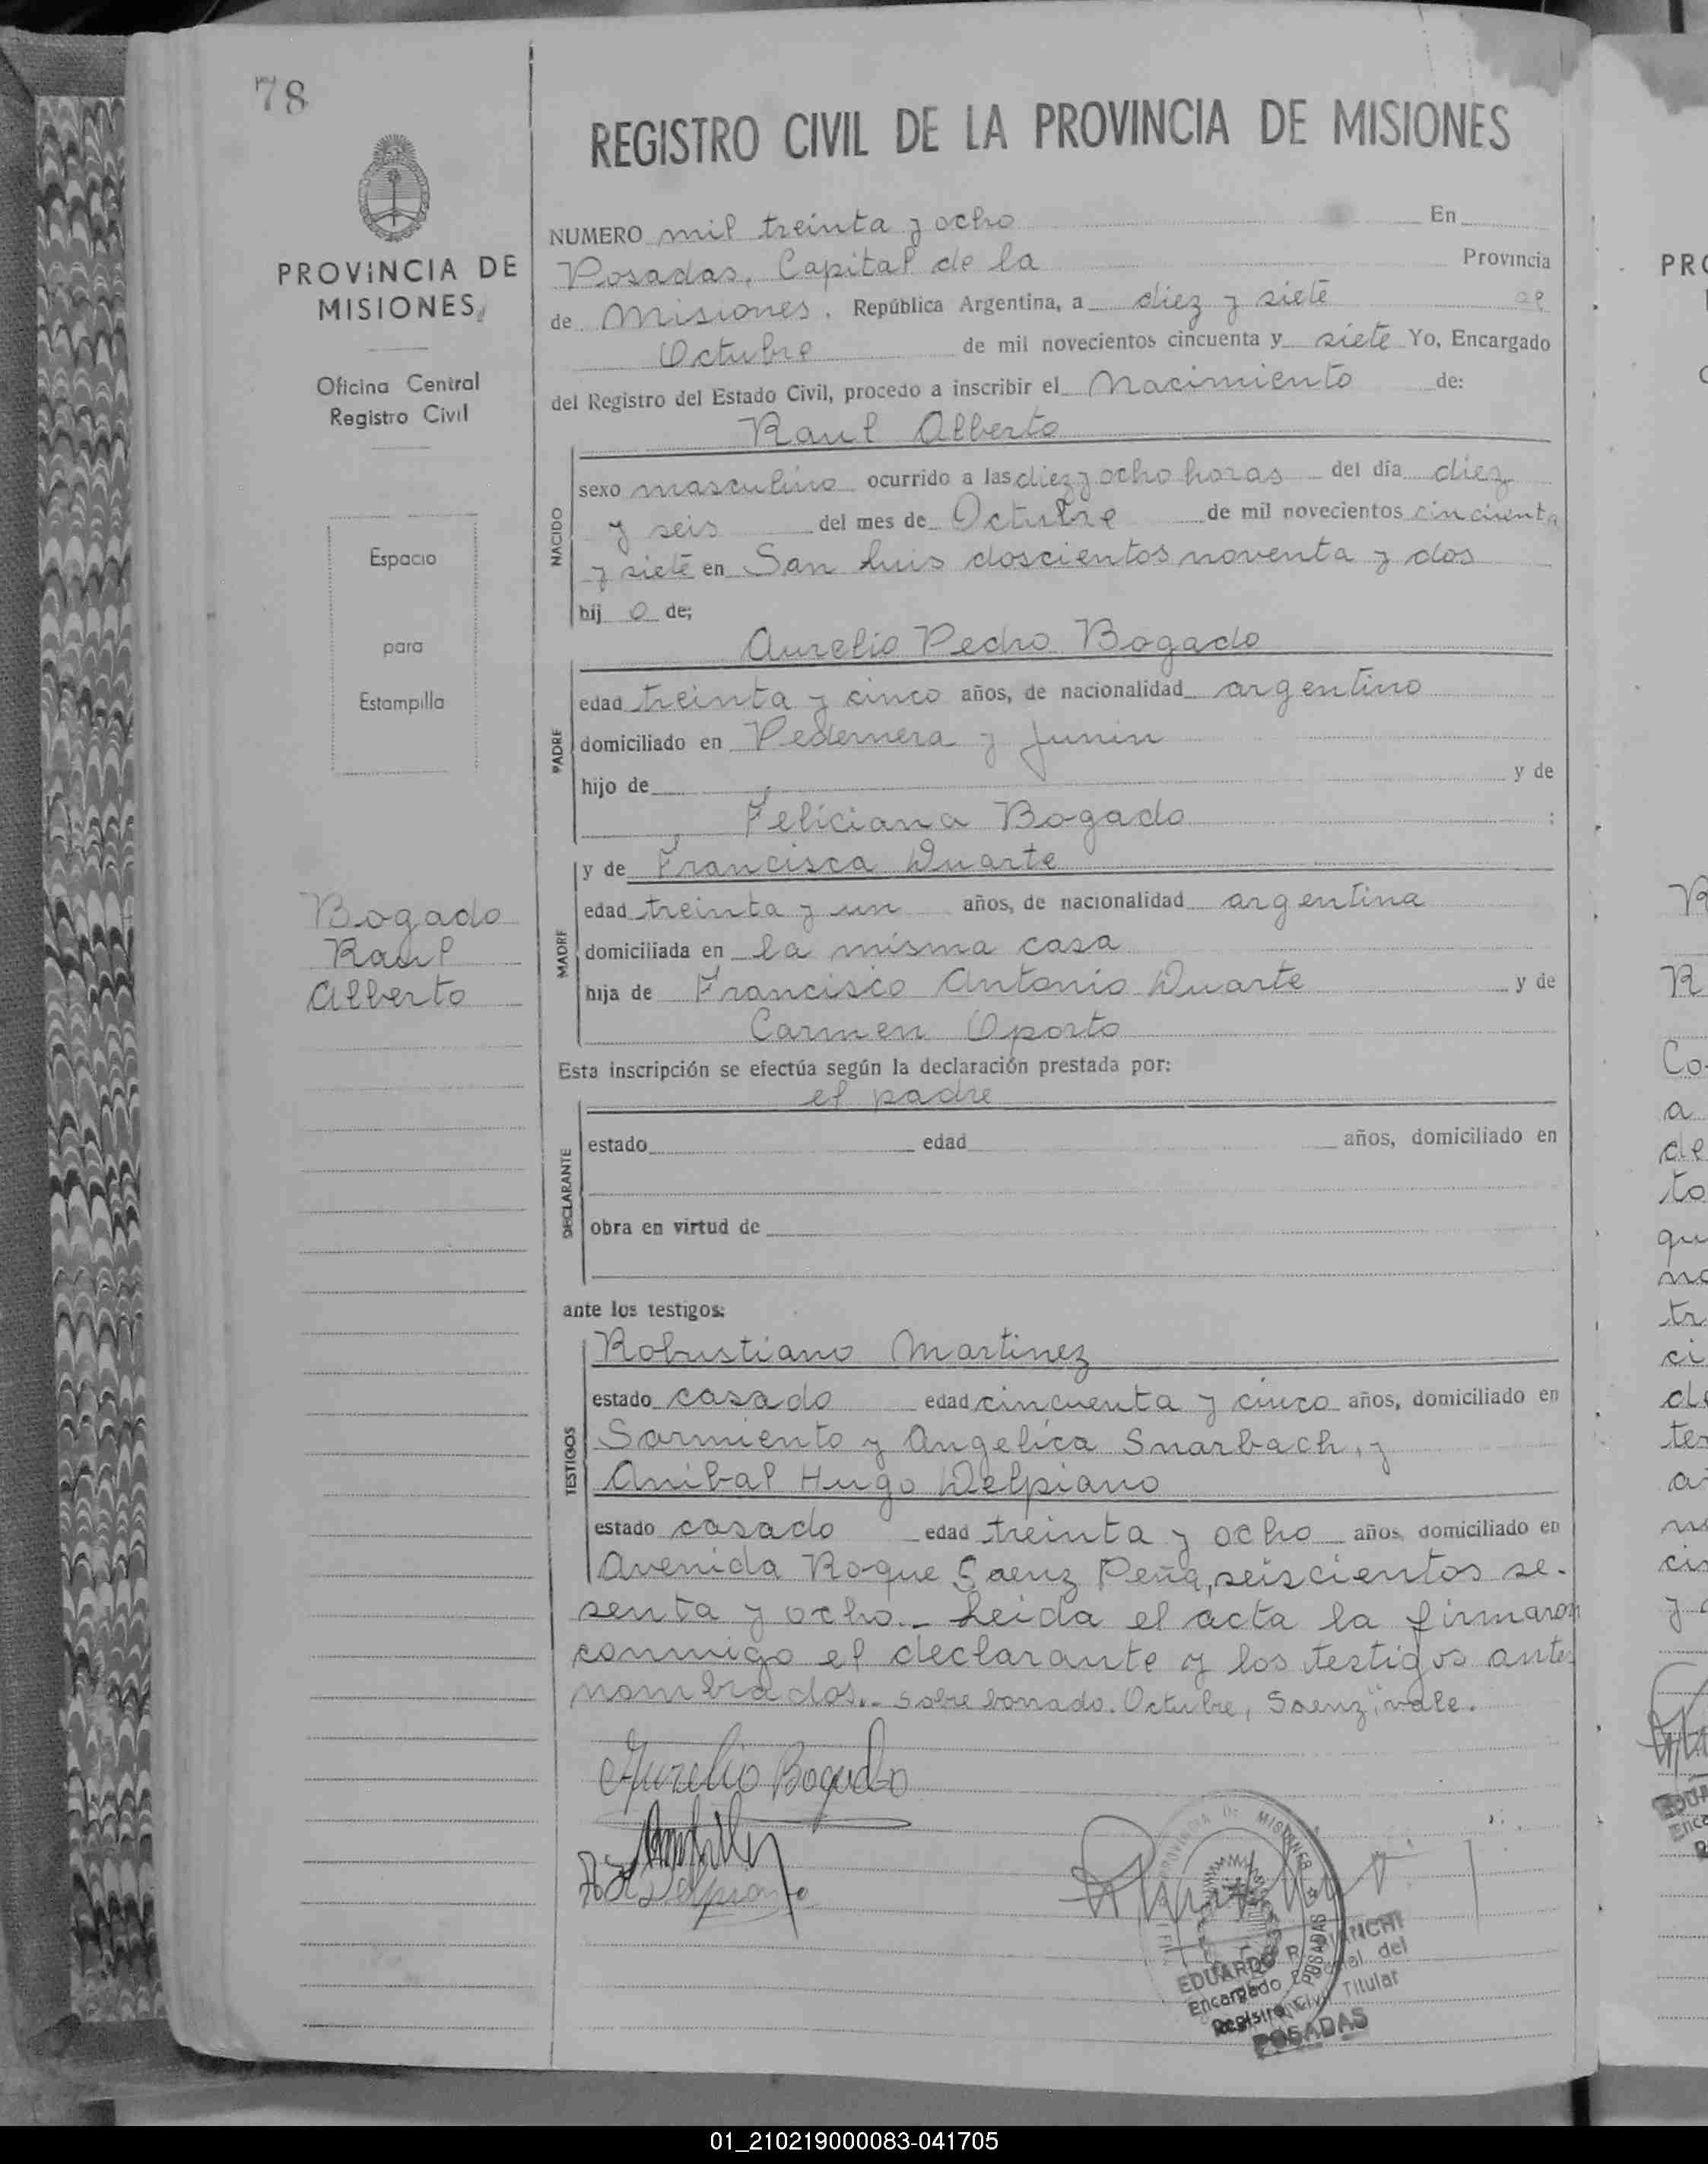 78
REGISTRO CIVIL DE LA PROVINCIA DE MISIONES
PROVINCIA DE
MISIONES
Oficina Central
Registro Civil
Espacio
para
Estampilla
Bogado
Raul
Alberto
NUMERO mil treinta y ocho En
Posadas, Capital de la Provincia
de Misiones, República Argentina, a diez y siete de
Octubre de mil novecientos cincuenta y siete Yo, Encargado
del Registro del Estado Civil, procedo a inscribir el Nacimiento de:
Raul Alberto
NACIDO
sexo masculino ocurrido a las diez y ocho horas del día diez
y seis del mes de Octubre de mil novecientos cincuenta
y siete en San Luis doscientos noventa y dos
hij o de;
Aurelio Pedro Bogado
PADRE
edad treinta y cinco años, de nacionalidad argentino
domiciliado en Pedernera y Junin
hijo de y de
Feliciana Bogado
MADRE
y de Francisca Duarte
edad treinta y un años, de nacionalidad argentina
domiciliada en la misma casa
hija de Francisco Antonio Duarte y de
Carmen Oporto
Esta inscripción se efectúa según la declaración prestada por:
el padre
DECLARANTE
estado edad años, domiciliado en
obra en virtud de
ante los testigos:
TESTIGOS
Robustiano Martinez
estado casado edad cincuenta y cinco años, domiciliado en
Sarmiento y Angelica Snarbach, y
Anibal Hugo Delpiano
estado casado edad treinta y ocho años, domiciliado en
Avenida Roque Saenz Peña, seiscientos se-
senta y ocho.- Leida el acta la firmaron
conmigo el declarante y los testigos ante
nombrados.- Sobre borrado. Octubre, Saenz, vale.
Aurelio Bogado
Delpiano
PROVINCIA DE MISIONES
POSADAS
EDUARDO
Encargado del
Registro Civil Titular
POSADAS
01_210219000083-041705